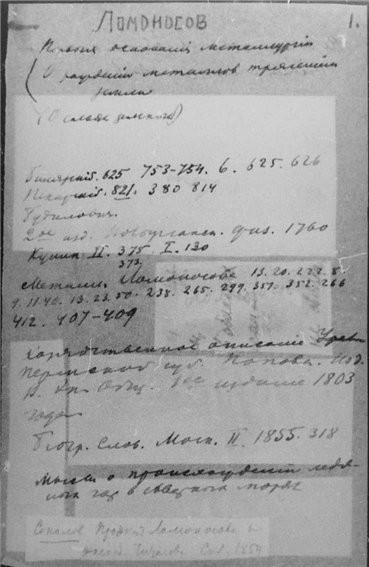 Ломоносов 1.
Первыя основания металлургии
(О рождении металлов трясением
земли
(О слоях земных)
Билярский. 625 753-754. 6. 625. 626
Пекарский. 821. 380 814
Будилович.
2ое изд. физ. 1760
Куник II. 375. I. 130
373
Ломоносова 13. 20. 222. 8.
9. 11. 40. 13. 23. 50. 238. 265. 299. 351. 352. 266
412. 407-409
Хозяйственное описание
Пермской губ. Попова. Изд.
В. Эк. Общ. издание 1803
года
Биогр. Слов. Моск. II. 1855. 318
Мысли о происхождении ледя-
ных гор в северных морях
Соколов Ломоносова и
Спб. 1854